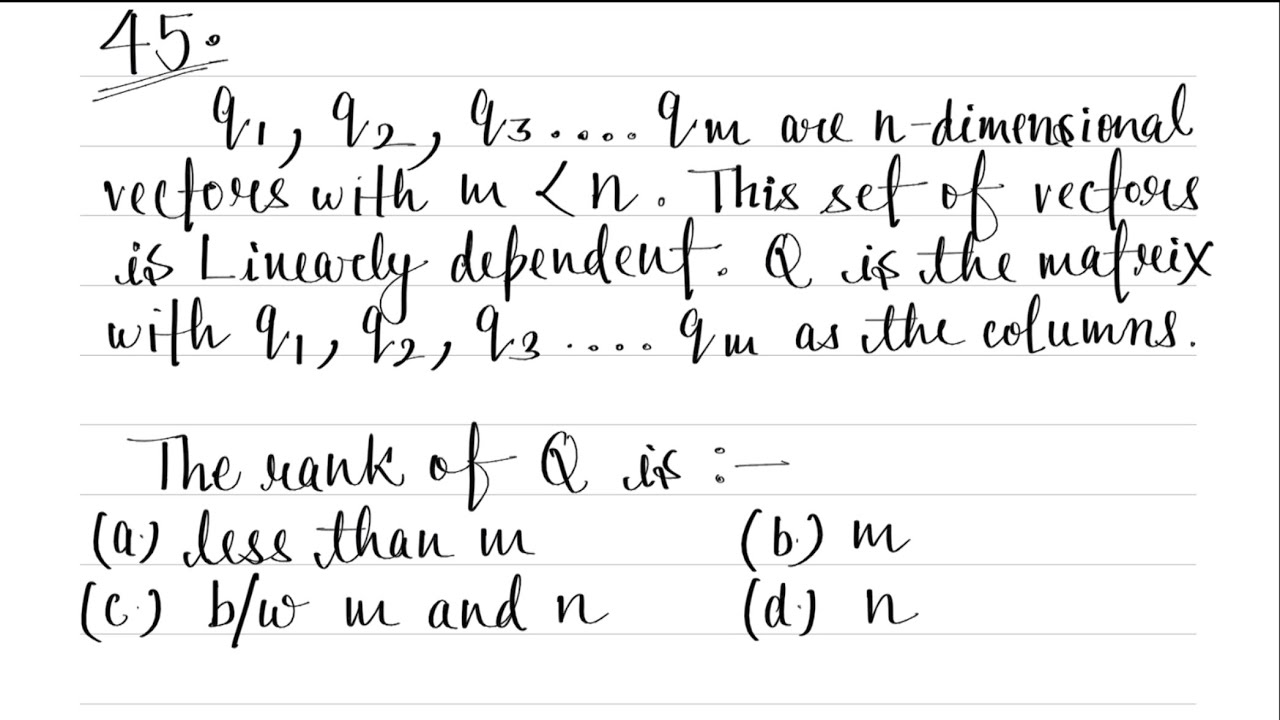 45.
q1, q2, q3.... qm are n-dimensional
vectors with m < n. This set of vectors
is Linearly dependent. Q is the matrix
with q1, q2, q3 .... qm as the columns.
The rank of Q is :-
(a.) less than m (b.) m
(c.) b/w m and n (d.) n